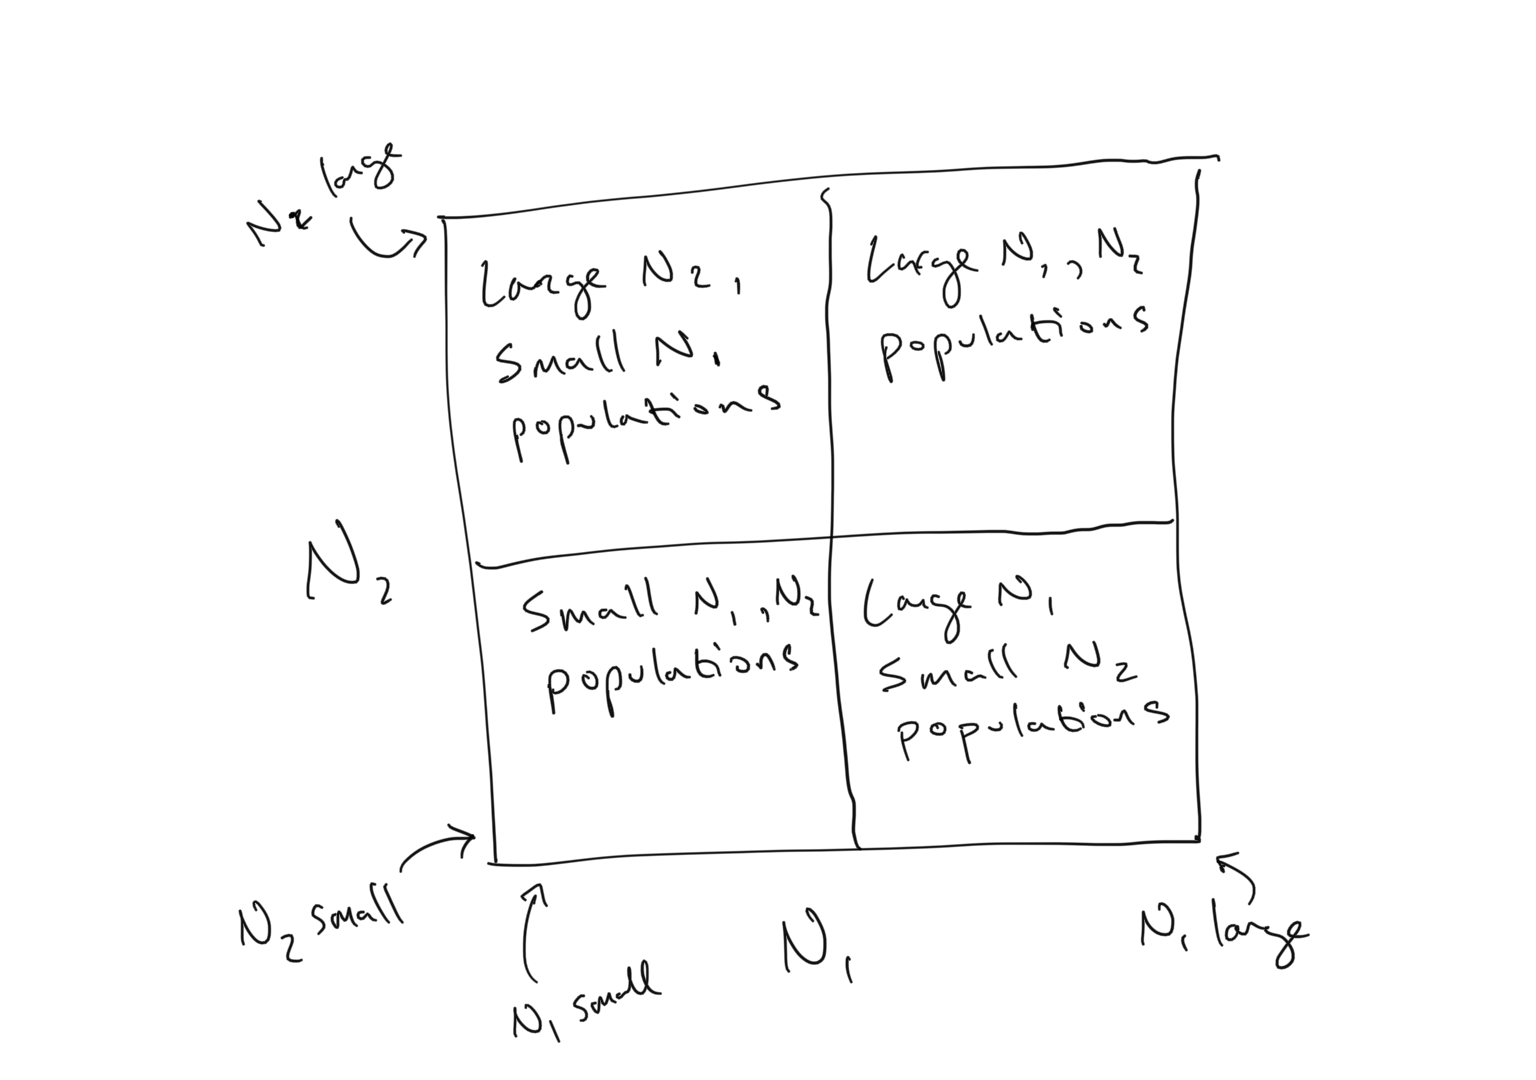 N2 large
Large N2,
Small N1
populations
Large N1, N2
populations
N2
Small N1, N2
populations
Large N1
Small N2
populations
N2 small
N1 small
N1
N1 large